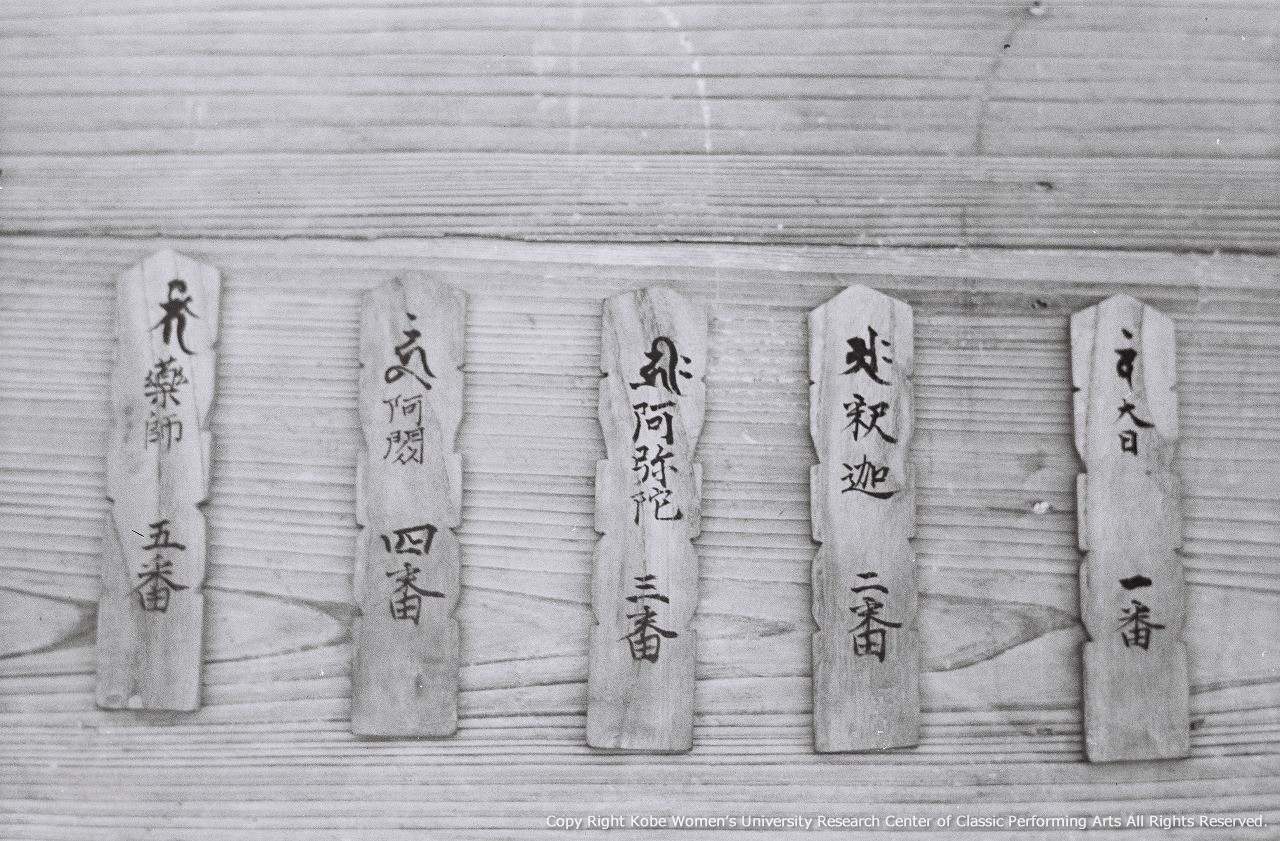 大日 一番
釈迦 二番
阿弥陀 三番
阿閦 四番
藥師 五番
Copy Right Kobe Women's University Research Center of Classic Performing Arts All Rights Reserved.